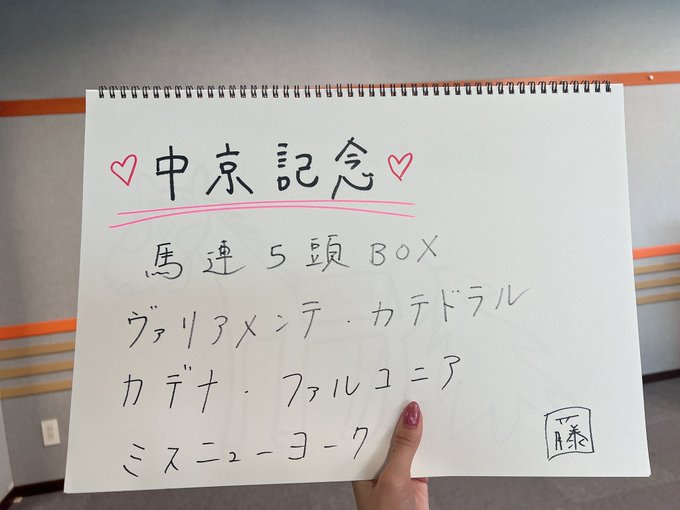 中京記念
馬連5頭BOX
ヴァリアメンテ・カテドラル
カデナ・ファルコニア
ミスニューヨーク
藤